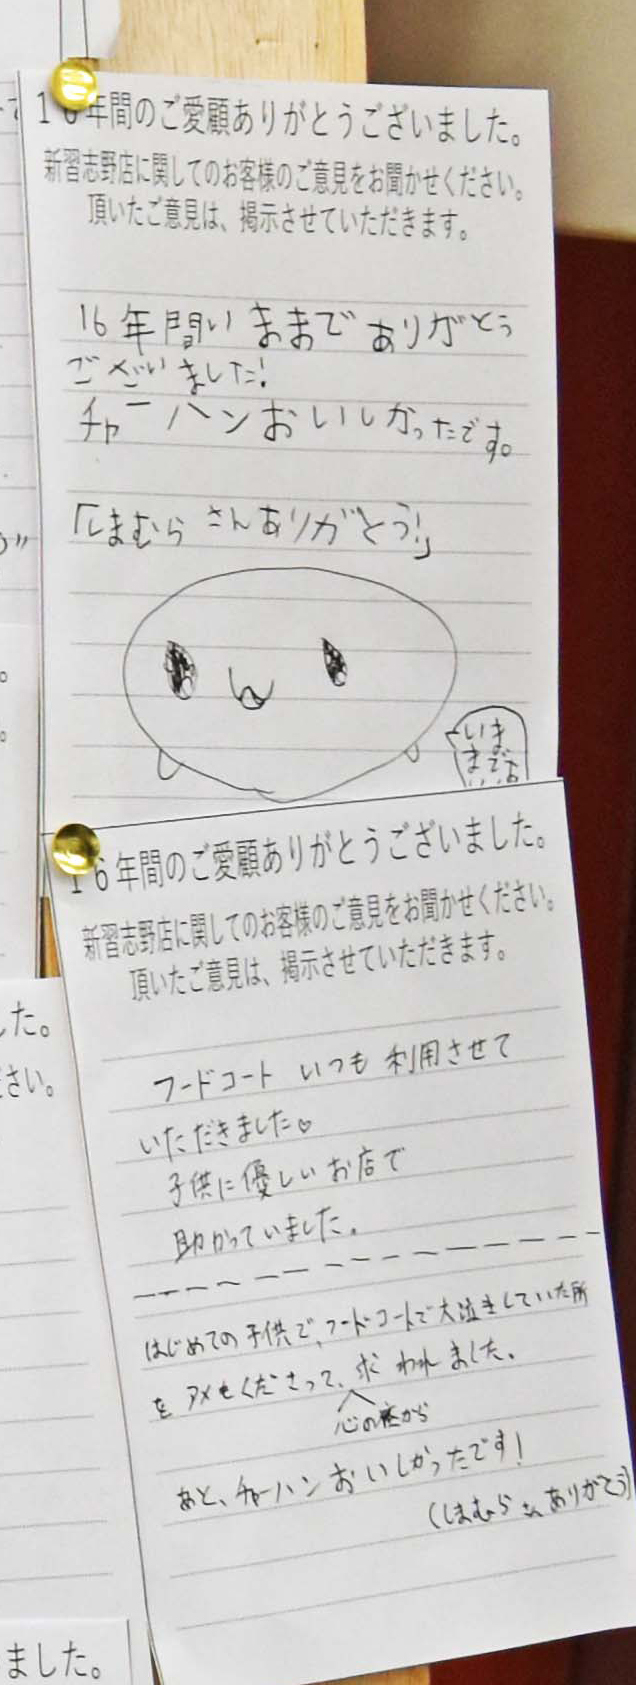 16年間のご愛顧ありがとうございました。
新習志野店に関してのお客様のご意見をお聞かせください。
頂いたご意見は、掲示させていただきます。
16年間いままでありがとう
ございました!
チャーハンおいしかったです。
「しまむらさんありがとう!」
いま
までお
16年間のご愛顧ありがとうございました。
新習志野店に関してのお客様のご意見をお聞かせください。
頂いたご意見は、掲示させていただきます。
フードコート いつも 利用させて
いただきました♡
子供に優しいお店で
助かっていました。
はじめての子供で、フードコートで大泣きしていた所
を アメをくださって、求われました。
心の底から
あと、チャーハンおいしかったです!
(しまむらさんありがとう)
した。
ださい。
ました。